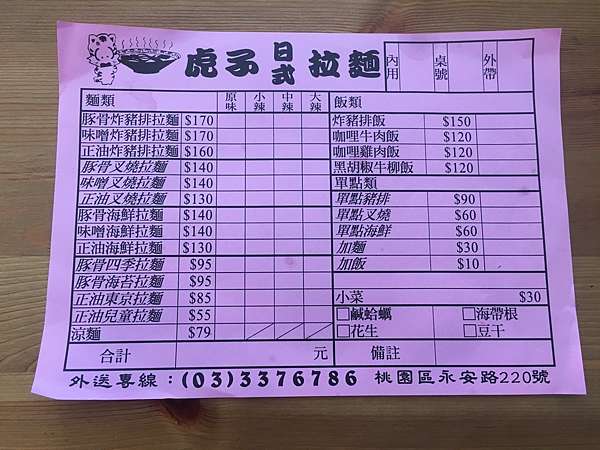 虎子 日式 拉麵 內用 桌號 外帶
麵類 原味 小辣 中辣 大辣 飯類
豚骨炸豬排拉麵 $170 炸豬排飯 $150
味噌炸豬排拉麵 $170 咖哩牛肉飯 $120
正油炸豬排拉麵 $160 咖哩雞肉飯 $120
豚骨叉燒拉麵 $140 黑胡椒牛柳飯 $120
味噌叉燒拉麵 $140 單點類
正油叉燒拉麵 $130 單點豬排 $90
豚骨海鮮拉麵 $140 單點叉燒 $60
味噌海鮮拉麵 $140 單點海鮮 $60
正油海鮮拉麵 $130 加麵 $30
豚骨四季拉麵 $95 加飯 $10
豚骨海苔拉麵 $95
正油東京拉麵 $85 小菜 $30
正油兒童拉麵 $55 □鹹蛤蠣 □海帶根
涼麵 $79 □花生 □豆干
合計 元 備註
外送專線：(03)3376786 桃園區永安路220號